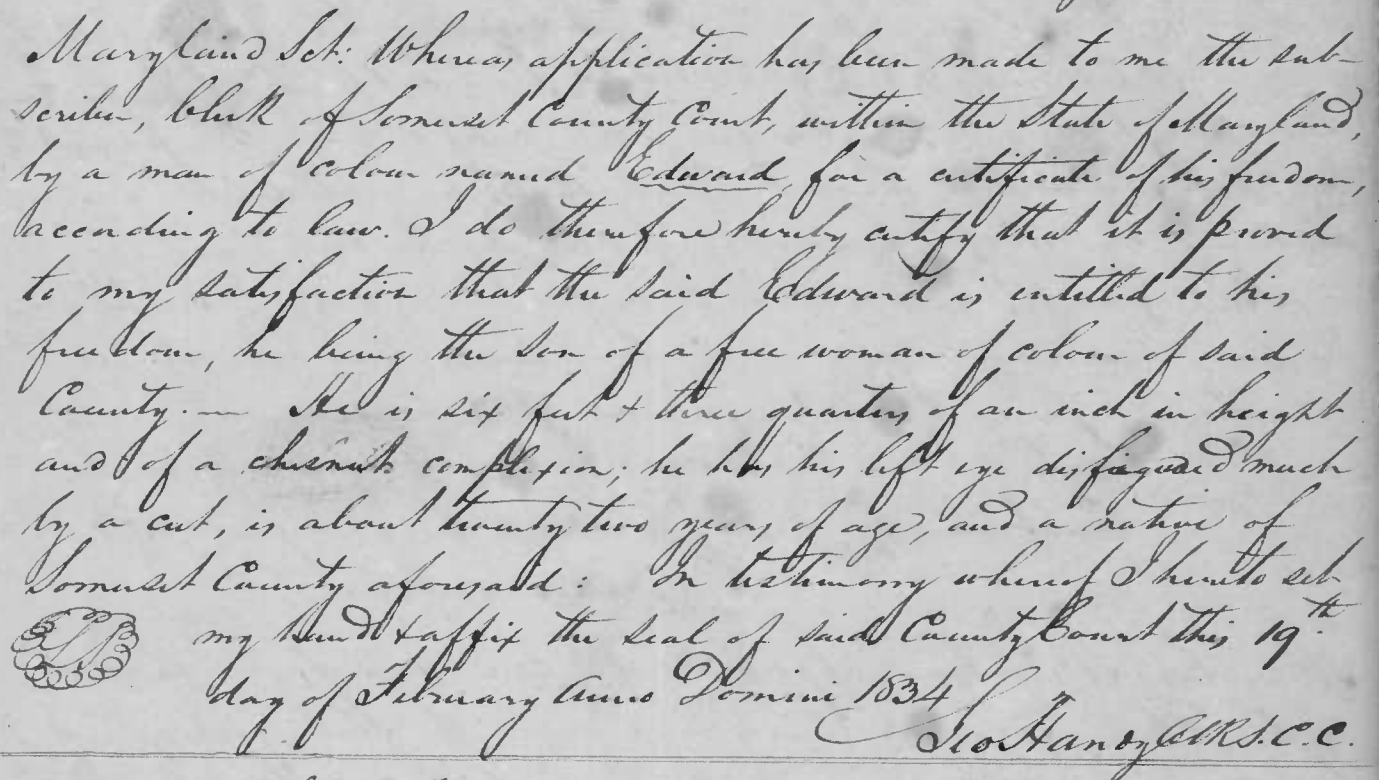 Maryland Sct: Whereas application has been made to me the sub-
scriber, Clerk of Somerset County Court, within the State of Maryland,
by a man of colour named Edward, for a certificate of his freedom,
according to law. I do therefore hereby certify that it is proved
to my satisfaction that the said Edward is entitled to his
freedom, he being the son of a free woman of colour of said
County. — He is six feet & three quarters of an inch in height
and of a chesnut complexion; he has his left eye disfigured much
by a cut, is about twenty two years of age, and a native of
Somerset County aforesaid: In testimony whereof I hereto set
my hand & affix the seal of said County Court this 19th
day of February Anno Domini 1834
Geo Handy Clk S.C.C.